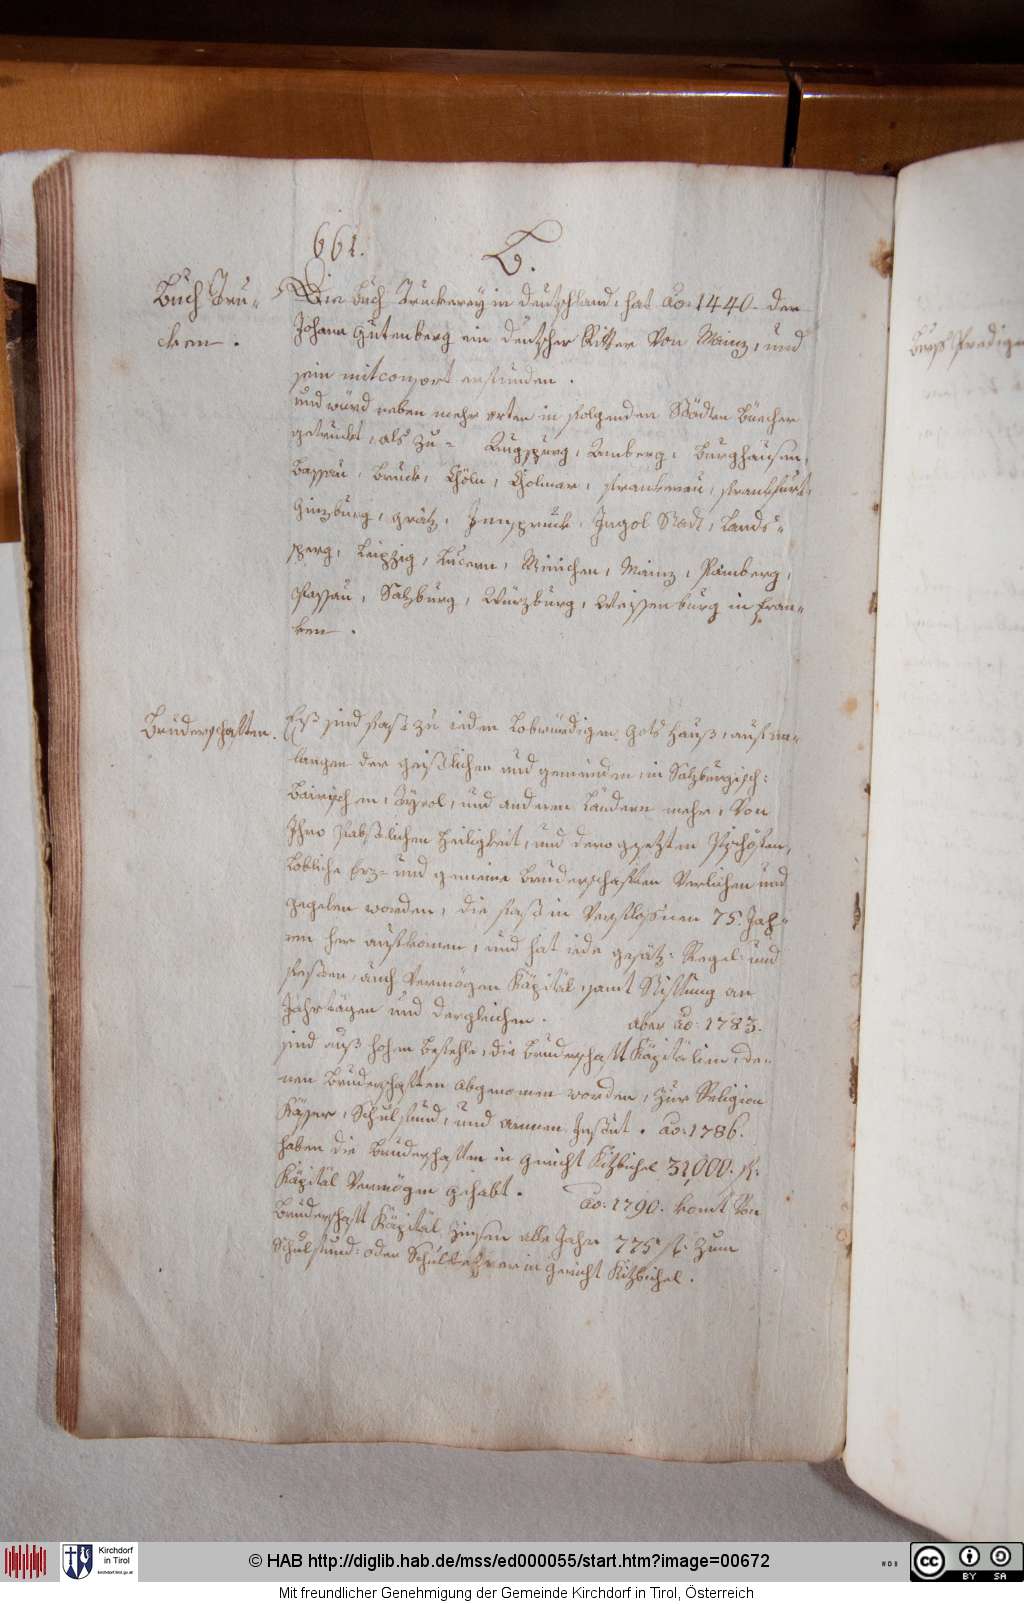 661.
B.
Buch Tru-
cken.
Die Buch Truckerey in Deutschland, hat ao: 1440. der
Johann Gutenberg ein deutscher Ritter von Mainz, und
sein mitconsort erfunden.
und würd neben mehr orten in folgenden Stödten Büecher
getruckt, als zu = Augspurg, Amberg, Burghausen,
Bassau, Bruck, Cöln, Cholmar, Frankfurt,
Ginzburg, Grätz, Innspruck, Ingol Stadt, Lands=
sperg, Leipzig, Lucern, Minichen, Mainz, Pamberg,
Passau, Salzburg, Würzburg, Weissenburg in Fran=
ken.
Bruderschaften.
Eß sind fast zu ieden Lobwürdigen Gots Hauß, auf an=
langen der geistlichen und gemeinden, in Salzburgisch:
Bairischen, Tyrol, und anderen Ländern mehr, Von
Ihro Pabstlichen Heiligkeit, und dero gsezten Bischöfen,
Lobliche Erz= und gemeine Bruderschaften Verlichen und
gegeben worden, die fast in Verflossnen 75. Jah=
ren her aufkomen, und hat iede gesätz: Regel: und
auch Vermögen Käpitäl, samt Stiftung an
Jahrtägen und dergleichen. aber ao: 1783.
sind auß hohen Befehle, die Bruderschaft Käpitälien, de=
nen Bruderschaften abgenomen worden, zur Religion
Kässer, Schulfund, und armen. ao: 1786.
haben die Bruderschaften in Gericht Kitzbichel 31,000. fl:
Käpitäl Vermögen gehabt. ao: 1790. komt Von
Bruderschaft Käpitäl Zinsen alle Jahr 775 fl: Zum
Schulfund: oder Schullehrer in Gericht Kitzbichel.
© HAB http://diglib.hab.de/mss/ed000055/start.htm?image=00672
Kirchdorf
in Tirol
kirchdorf.tirol.gv.at
WDB
cc
BY SA
Mit freundlicher Genehmigung der Gemeinde Kirchdorf in Tirol, Österreich